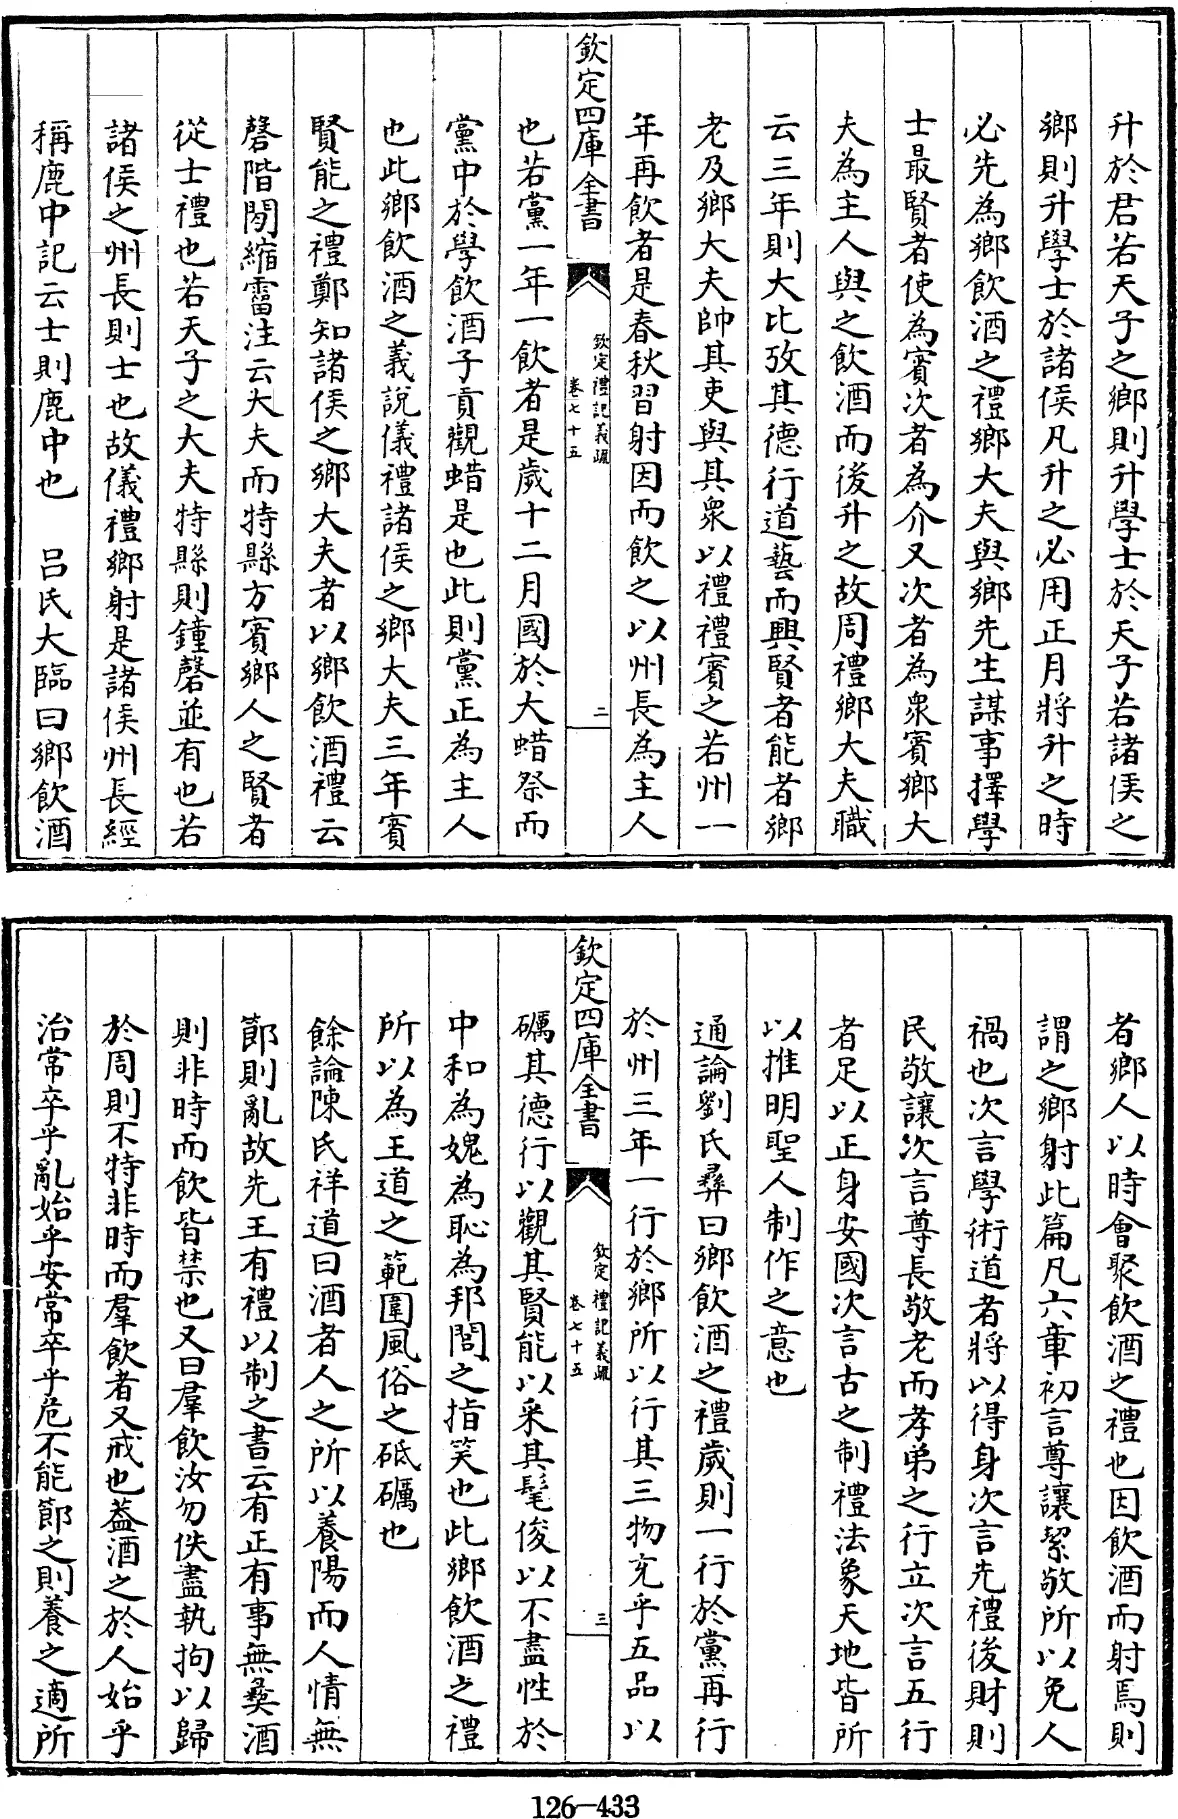 升於君若天子之鄉則升學士於天子若諸侯之
鄉則升學士於諸侯凡升之必用正月將升之時
必先為鄉飲酒之禮鄉大夫與鄉先生謀事擇學
士最賢者使為賓次者為介又次者為衆賓鄉大
夫為主人與之飲酒而後升之故周禮鄉大夫職
云三年則大比攷其德行道藝而興賢者能者鄉
老及鄉大夫帥其吏與其衆以禮禮賓之若州一
年再飲者是春秋習射因而飲之以州長為主人
欽定四庫全書
欽定禮記義疏
卷七十五
二
也若黨一年一飲者是歲十二月國於大蜡祭而
黨中於學飲酒子貢觀蜡是也此則黨正為主人
也此鄉飲酒之義說儀禮諸侯之鄉大夫三年賓
賢能之禮鄭知諸侯之鄉大夫者以鄉飲酒禮云
磬階間縮霤注云大夫而特縣方賓鄉人之賢者
從士禮也若天子之大夫特縣則鐘磬並有也若
諸侯之州長則士也故儀禮鄉射是諸侯州長經
稱鹿中記云士則鹿中也　呂氏大臨曰鄉飲酒
者鄉人以時會聚飲酒之禮也因飲酒而射焉則
謂之鄉射此篇凡六章初言尊讓絜敬所以免人
禍也次言學術道者將以得身次言先禮後財則
民敬讓次言尊長敬老而孝弟之行立次言五行
者足以正身安國次言古之制禮法象天地皆所
以推明聖人制作之意也
通論劉氏彞曰鄉飲酒之禮歲則一行於黨再行
於州三年一行於鄉所以行其三物充乎五品以
欽定四庫全書
欽定禮記義疏
卷七十五
三
礪其德行以觀其賢能以采其髦俊以不盡性於
中和為媿為恥為邦閭之指笑也此鄉飲酒之禮
所以為王道之範圍風俗之砥礪也
餘論陳氏祥道曰酒者人之所以養陽而人情無
節則亂故先王有禮以制之書云有正有事無彞酒
則非時而飲皆禁也又曰羣飲汝勿佚盡執拘以歸
於周則不特非時而羣飲者又戒也葢酒之於人始乎
治常卒乎亂始乎安常卒乎危不能節之則養之適所
126-433